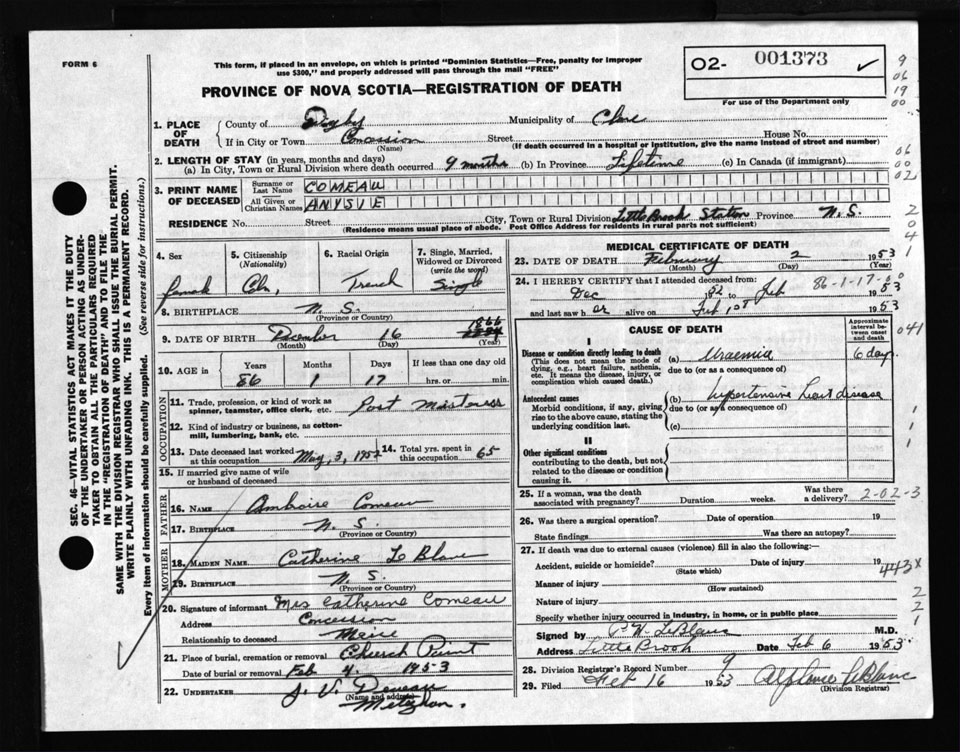 FORM 6
This form, if placed in an envelope, on which is printed "Dominion Statistics—Free, penalty for improper
use $300," and properly addressed will pass through the mail "FREE"
PROVINCE OF NOVA SCOTIA—REGISTRATION OF DEATH
O2- 001373
For use of the Department only
9
06
19
00
1. PLACE OF DEATH County of Digby Municipality of Clare
If in City or Town Concession (Name) Street House No.
(If death occurred in a hospital or institution, give the name instead of street and number)
2. LENGTH OF STAY (in years, months and days)
(a) In City, Town or Rural Division where death occurred 9 months (b) In Province Lifetime (c) In Canada (if immigrant)
06
00
02
3. PRINT NAME OF DECEASED
Surname or Last Name COMEAU
All Given or Christian Names ANYSIE
RESIDENCE No. Street City, Town or Rural Division Little Brook Station Province N. S.
(Residence means usual place of abode. Post Office Address for residents in rural parts not sufficient)
2
0
4
1
4. Sex 5. Citizenship (Nationality) 6. Racial Origin 7. Single, Married, Widowed or Divorced (write the word)
Female Cdn. French Single
8. BIRTHPLACE N. S.
(Province or Country)
9. DATE OF BIRTH December 16 1866
(Month) (Day) (Year)
10. AGE in Years Months Days If less than one day old
86 1 17 hrs. or min.
OCCUPATION
11. Trade, profession, or kind of work as spinner, teamster, office clerk, etc. Post Mistress
12. Kind of industry or business, as cotton-mill, lumbering, bank, etc.
13. Date deceased last worked at this occupation May, 3, 1952 14. Total yrs. spent in this occupation 65
15. If married give name of wife or husband of deceased
FATHER
16. NAME Ambroise Comeau
17. BIRTHPLACE N. S.
(Province or Country)
MOTHER
18. MAIDEN NAME Catherine Le Blanc
19. BIRTHPLACE N. S.
(Province or Country)
20. Signature of informant Mrs Catherine Comeau
Address Concession
Relationship to deceased
21. Place of burial, cremation or removal Church Point
Date of burial or removal Feb 4 1953
22. UNDERTAKER J. V. Deveau
(Name and address)
Meteghan.
MEDICAL CERTIFICATE OF DEATH
23. DATE OF DEATH February 2 1953
(Month) (Day) (Year)
24. I HEREBY CERTIFY that I attended deceased from: 86-1-17-
Dec 1952 to Feb 1953
and last saw her alive on Feb 1953
CAUSE OF DEATH
Approximate interval between onset and death
041
I
Disease or condition directly leading to death (a) Uraemia 6 days
(This does not mean the mode of dying, e.g., heart failure, asthenia, etc. It means the disease, injury, or complication which caused death.)
due to (or as a consequence of)
Antecedent causes (b) Hypertensive heart disease
Morbid conditions, if any, giving rise to the above cause, stating the underlying condition last.
due to (or as a consequence of)
(c)
II
Other significant conditions
contributing to the death, but not related to the disease or condition causing it.
1
1
1
25. If a woman, was the death associated with pregnancy? Duration weeks. Was there a delivery? 2-02-3
26. Was there a surgical operation? Date of operation 19
State findings Was there an autopsy?
27. If death was due to external causes (violence) fill in also the following:—
Accident, suicide or homicide? Date of injury 19
(State which)
443X
Manner of injury
(How sustained)
Nature of injury
Specify whether injury occurred in industry, in home, or in public place
2
2
1
Signed by P. W. LeBlanc M.D.
Address Little Brook Date Feb 6 1953
28. Division Registrar's Record Number 9
29. Filed Feb 16 1953 Alphonse LeBlanc
(Division Registrar)
SEC. 46—VITAL STATISTICS ACT MAKES IT THE DUTY
OF THE UNDERTAKER OR PERSON ACTING AS UNDER-
TAKER TO OBTAIN ALL THE PARTICULARS REQUIRED
IN THE "REGISTRATION OF DEATH" AND TO FILE THE
SAME WITH THE DIVISION REGISTRAR WHO SHALL ISSUE THE BURIAL PERMIT.
WRITE PLAINLY WITH UNFADING INK. THIS IS A PERMANENT RECORD.
Every item of information should be carefully supplied. (See reverse side for instructions.)